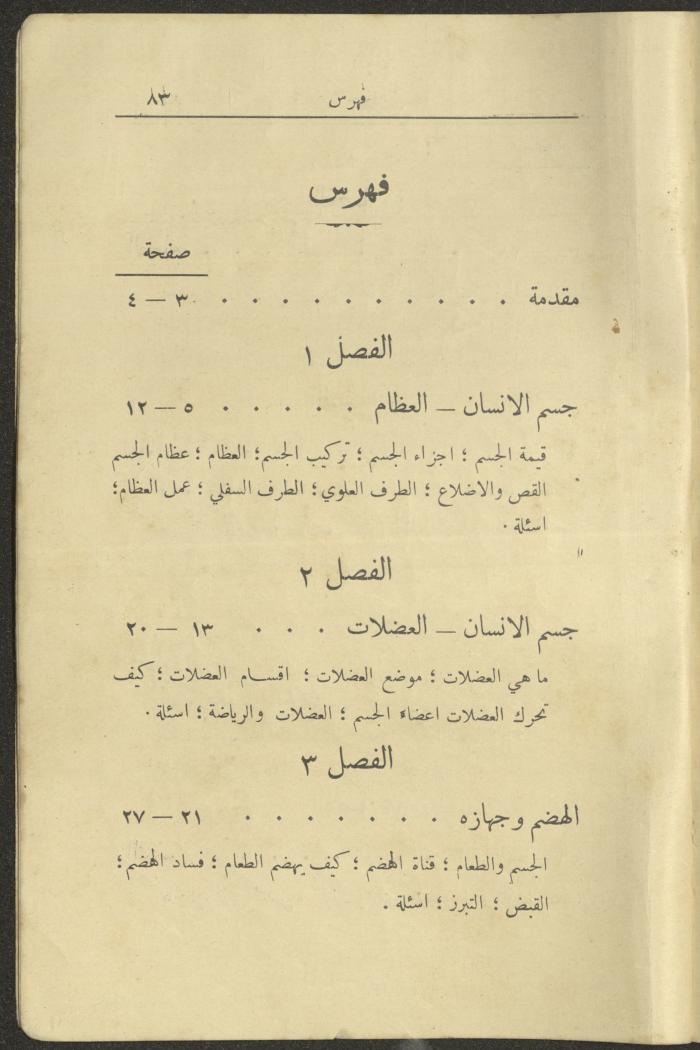 فهرس ٨٣
فهرس
صفحة
مقدمة . . . . . . . . . . ٣ — ٤
الفصل ١
جسم الانسان — العظام . . . . . ٥ — ١٢
قيمة الجسم ؛ اجزاء الجسم ؛ تركيب الجسم؛ العظام ؛ عظام الجسم
القص والاضلاع ؛ الطرف العلوي؛ الطرف السفلي ؛ عمل العظام؛
اسئلة .
الفصل ٢
جسم الانسان — العضلات . . . ١٣ — ٢٠
ما هي العضلات ؛ موضع العضلات ؛ اقسام العضلات ؛ كيف
تحرك العضلات اعضاء الجسم ؛ العضلات والرياضة ؛ اسئلة .
الفصل ٣
الهضم وجهازه . . . . . . . ٢١ — ٢٧
الجسم والطعام ؛ قناة الهضم ؛ كيف يهضم الطعام ؛ فساد الهضم؛
القبض ؛ التبرز ؛ اسئلة .